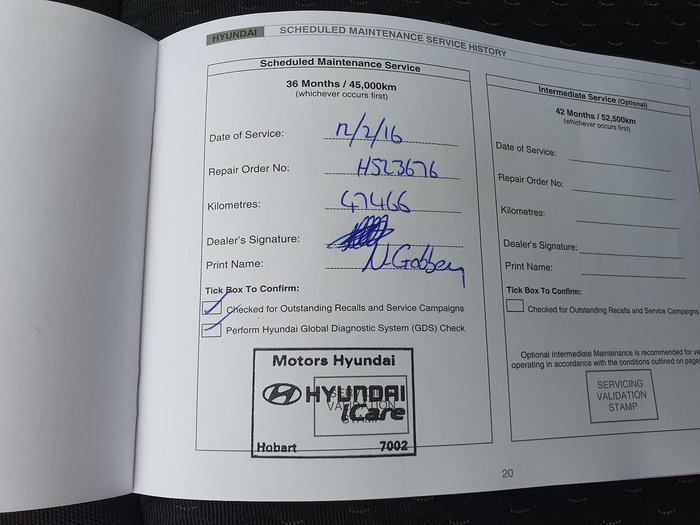 HYUNDAI SCHEDULED MAINTENANCE SERVICE HISTORY
Scheduled Maintenance Service
36 Months / 45,000km
(whichever occurs first)
Date of Service: 12/2/16
Repair Order No: HS23676
Kilometres: 47466
Dealer's Signature:
Print Name: N.Gobbey
Tick Box To Confirm:
Checked for Outstanding Recalls and Service Campaigns
Perform Hyundai Global Diagnostic System (GDS) Check
Motors Hyundai
HYUNDAI
iCare
SERVICING
VALIDATION
STAMP
Hobart 7002
Intermediate Service (Optional)
42 Months / 52,500km
(whichever occurs first)
Date of Service:
Repair Order No:
Kilometres:
Dealer's Signature:
Print Name:
Tick Box To Confirm:
Checked for Outstanding Recalls and Service Campaigns
Optional Intermediate Maintenance is recommended for ve
operating in accordance with the conditions outlined on pages
SERVICING
VALIDATION
STAMP
20